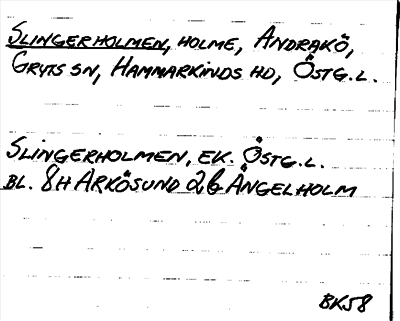 SLINGERHOLMEN, HOLME, ANDRAKÖ,
GRYTS SN, HAMMARKINDS HD, ÖSTG. L.
SLINGERHOLMEN, EK. ÖSTG. L.
BL. 8H ARKÖSUND 2b ÄNGELHOLM
BK58